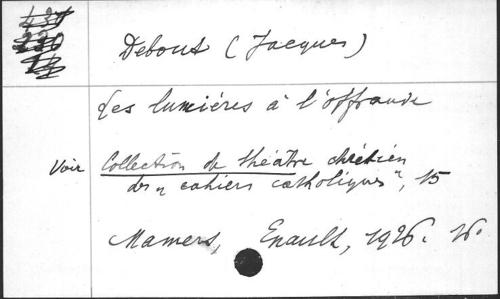 Debout (Jacques)
Les lumières à l'offrande
Voir Collection de théâtre chrétien
des "cahiers catholiques", 15
Mamers, Enault, 1926. 16.